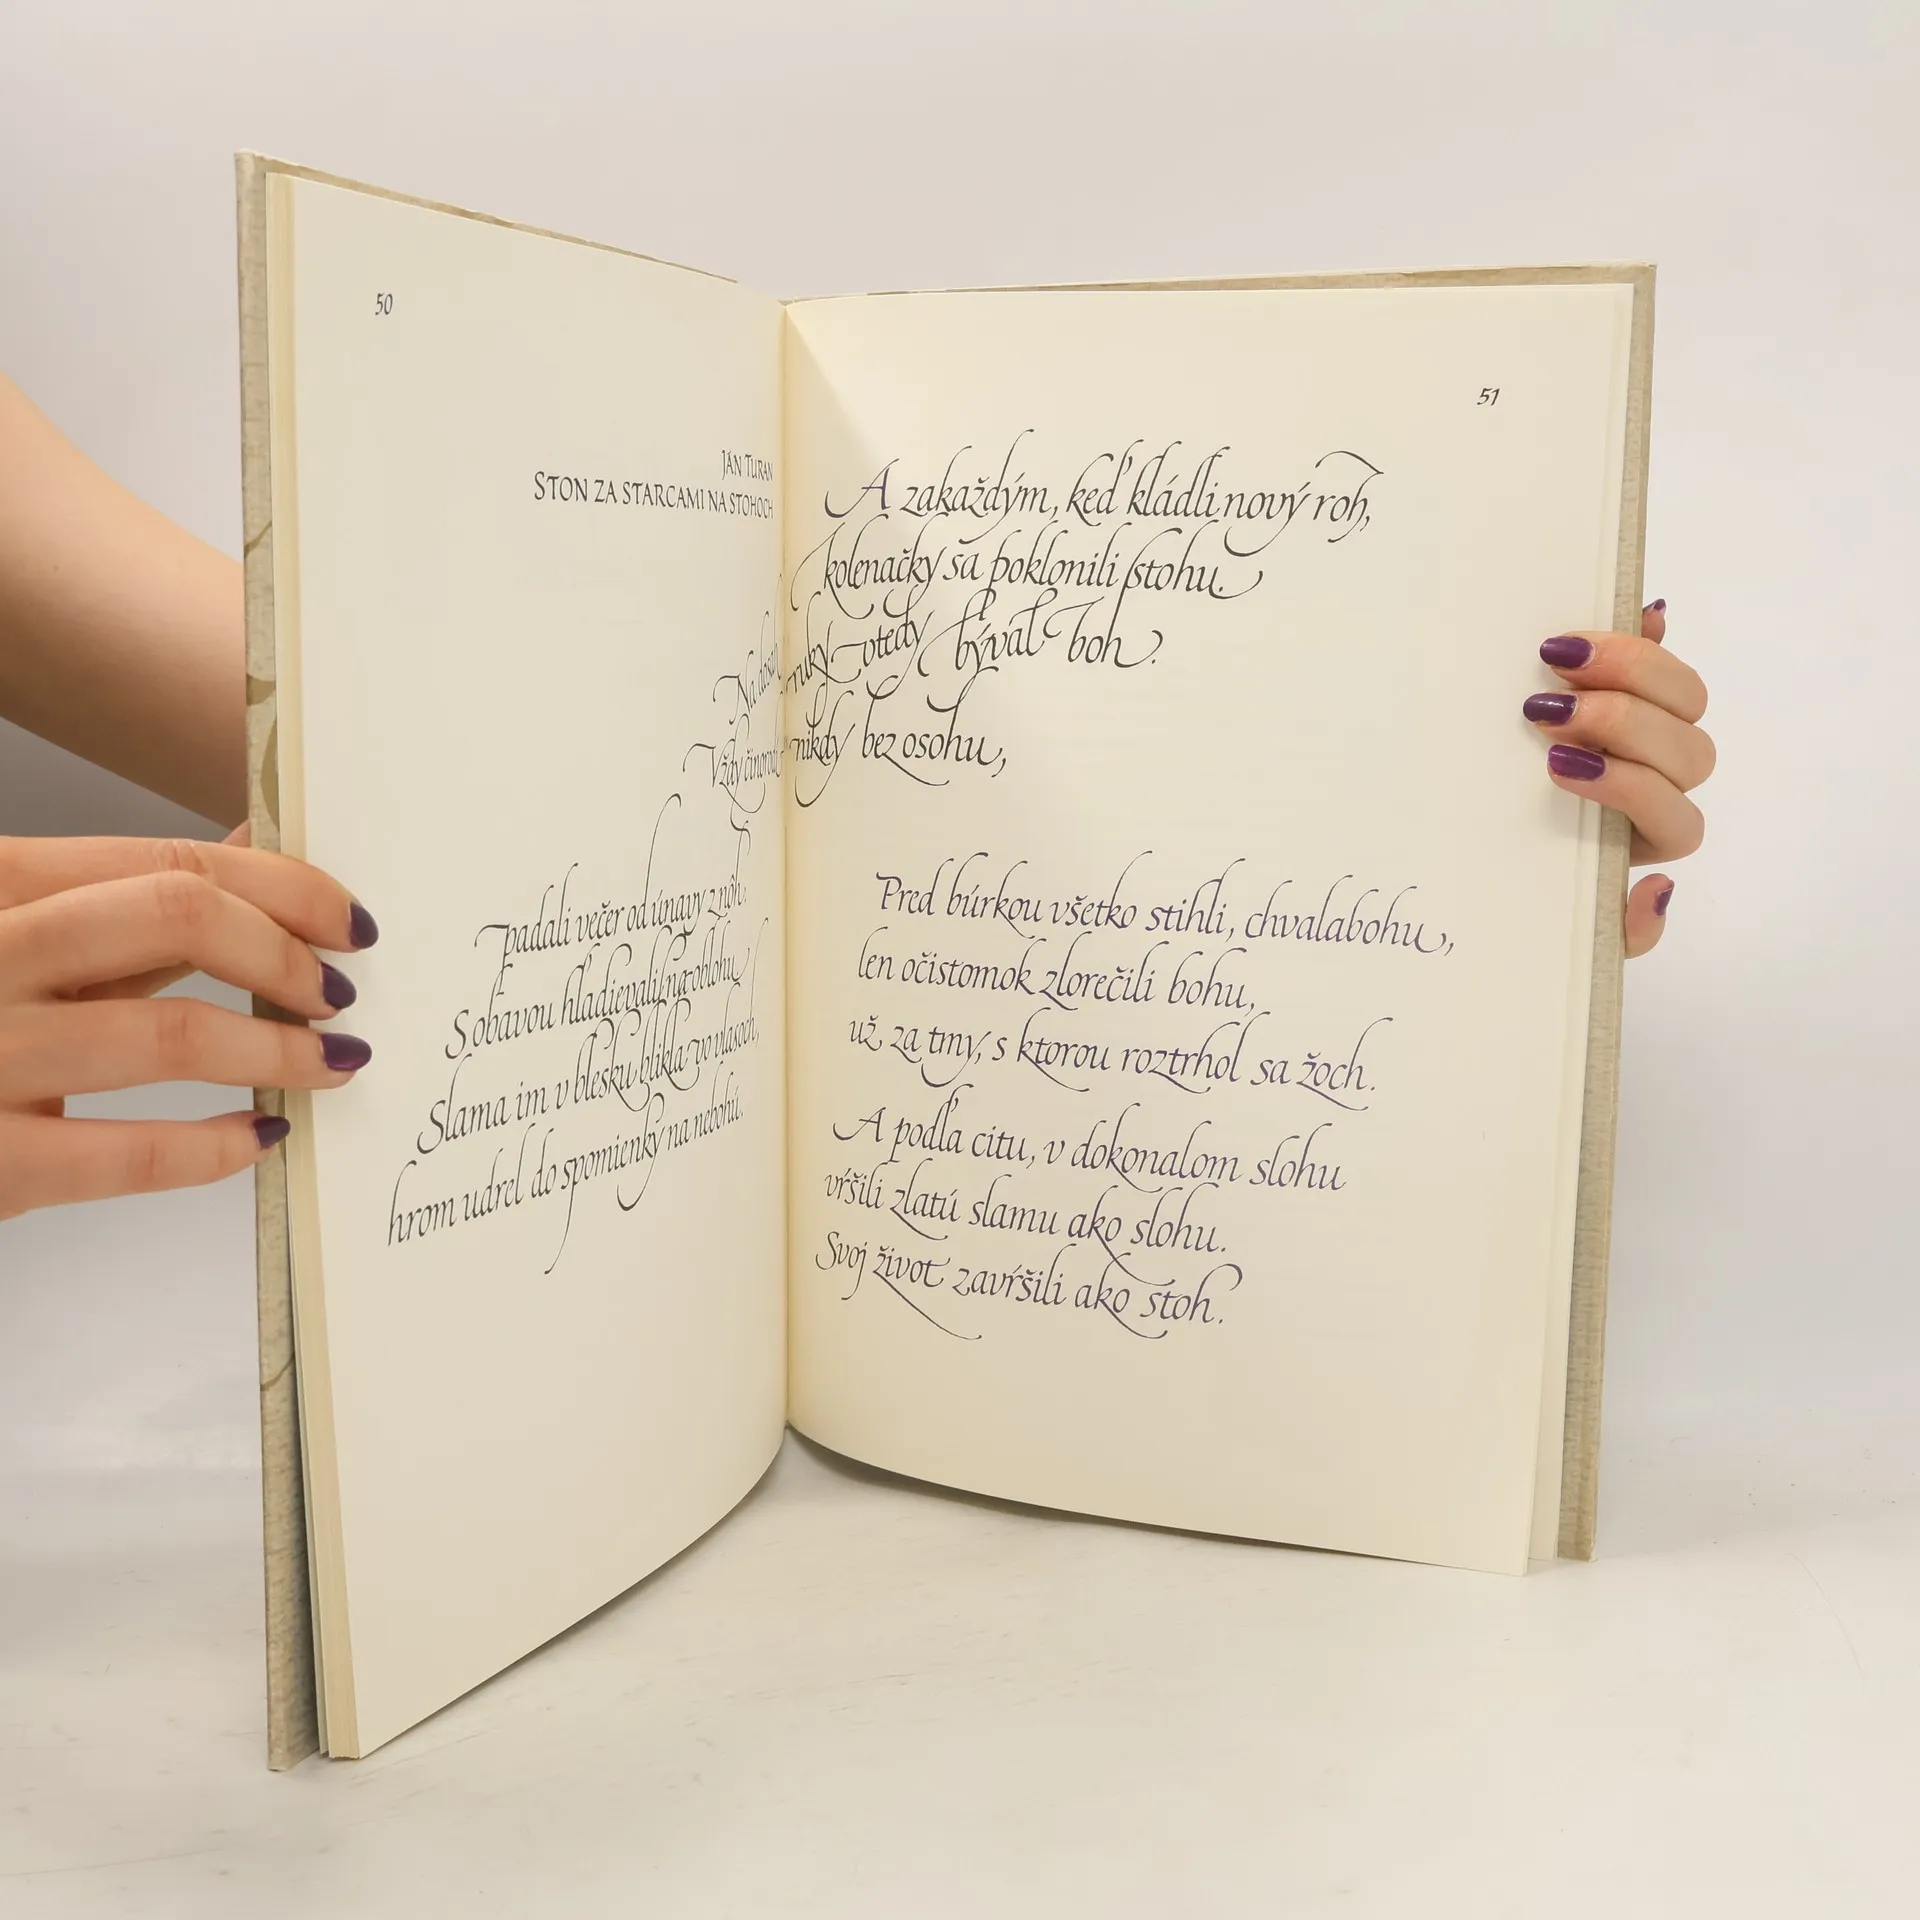 50
JÁN TURAN
STON ZA STARCAMI NA STOHOCH
51
A zakaždým, keď kládli nový roh,
kolenačky sa poklonili stohu.
Na dosah ruky vtedy býval boh.
Vždy činorodí nikdy bez osohu,
padali večer od únavy z nôh.
S obavou hľadievali na oblohu.
Slama im v blesku blikla vo vlasoch,
hrom udrel do spomienky na nebohú.
Pred búrkou všetko stihli, chvalabohu,
len očistomok zlorečili bohu,
už za tmy, s ktorou roztrhol sa žoch.
A podľa citu, v dokonalom slohu
vŕšili zlatú slamu ako slohu.
Svoj život zavŕšili ako stoh.